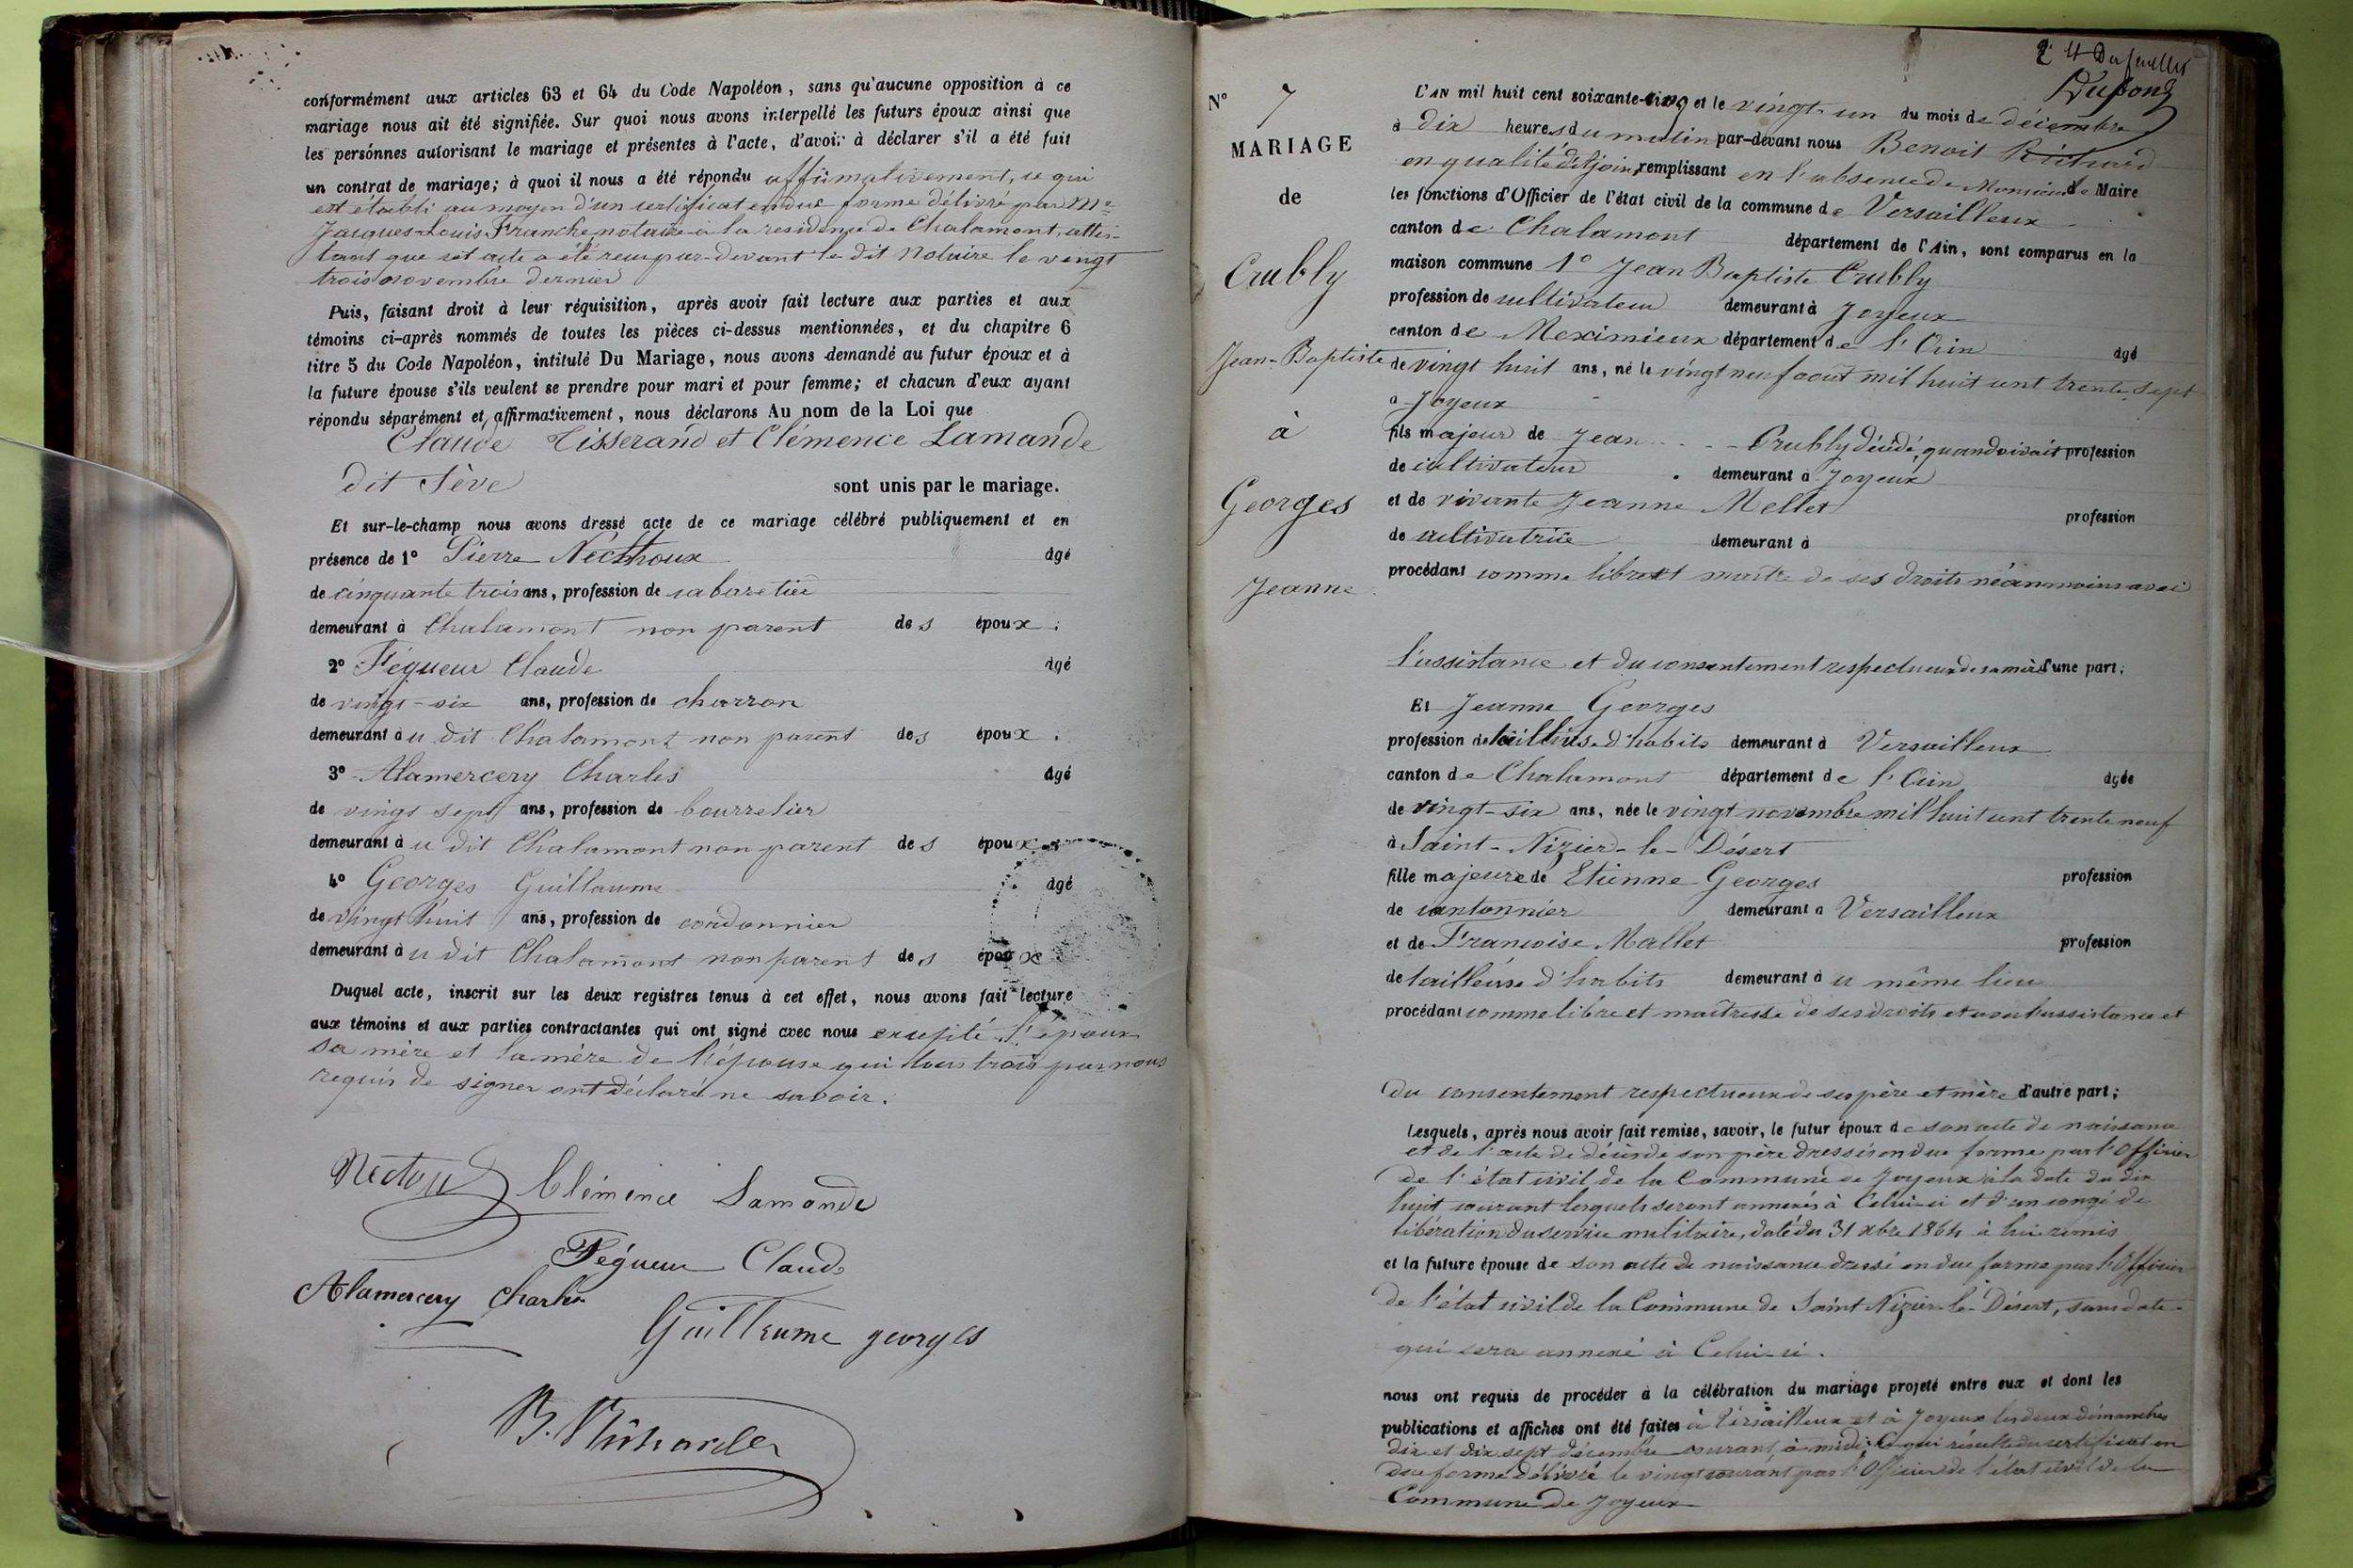 conformément aux articles 63 et 64 du Code Napoléon, sans qu'aucune opposition à ce
mariage nous ait été signifiée. Sur quoi nous avons interpellé les futurs époux ainsi que
les persónnes autorisant le mariage et présentes à l'acte, d'avoir à déclarer s'il a été fait
un contrat de mariage; à quoi il nous a été répondu affirmativement, ce qui
est établi au moyen d'un certificat en due forme délivré par Me
Jacques-Louis Franche, notaire à la résidence de Chalamont, attes-
tant que cet acte a été reçu par-devant le dit Notaire le vingt
trois novembre dernier
Puis, faisant droit à leur réquisition, après avoir fait lecture aux parties et aux
témoins ci-après nommés de toutes les pièces ci-dessus mentionnées, et du chapitre 6
titre 5 du Code Napoléon, intitulé Du Mariage, nous avons demandé au futur époux et à
la future épouse s'ils veulent se prendre pour mari et pour femme; et chacun d'eux ayant
répondu séparément et affirmativement, nous déclarons Au nom de la Loi que
Claude Tisserand et Clémence Lamande
dit Sève sont unis par le mariage.
Et sur-le-champ nous avons dressé acte de ce mariage célébré publiquement et en
présence de 1° Pierre Necthoux âgé
de cinquante trois ans, profession de cabaretier
demeurant à Chalamont non parent des époux;
2° Féqueur Claude âgé
de vingt-six ans, profession de charron
demeurant au dit Chalamont non parent des époux;
3° Alamercery Charles âgé
de vingt sept ans, profession de bourrelier
demeurant au dit Chalamont non parent des époux
4° Georges Guillaume âgé
de vingt huit ans, profession de cordonnier
demeurant au dit Chalamont non parent des époux
Duquel acte, inscrit sur les deux registres tenus à cet effet, nous avons fait lecture
aux témoins et aux parties contractantes qui ont signé avec nous excepté l'époux
sa mère et la mère de l'épouse qui tous trois par nous
requis de signer ont déclaré ne savoir.
Nectoux Clémence Lamande
Féqueur Claude
Alamercery Charles
Guillaume georges
B. Richarder
Dupong
N° 7
MARIAGE
de
Crubly
Jean-Baptiste
à
Georges
Jeanne
L'AN mil huit cent soixante-cinq et le vingt-un du mois de décembre
à dix heures du matin par-devant nous Benoit Richard
en qualité d'adjoint remplissant en l'absence de Monsieur le Maire
les fonctions d'Officier de l'état civil de la commune de Versailleux
canton de Chalamont département de l'Ain, sont comparus en la
maison commune 1° Jean Baptiste Crubly
profession de cultivateur demeurant à Joyeux
canton de Meximieux département de l'Ain âgé
de vingt huit ans, né le vingt neuf août mil huit cent trente sept
à Joyeux
fils majeur de Jean Crubly décédé, quand vivait profession
de cultivateur demeurant à Joyeux
et de vivante Jeanne Mellet profession
de cultivatrice demeurant à
procédant comme libre et maître de ses droits néanmoins avec
l'assistance et du consentement respectueux de sa mère d'une part;
Et Jeanne Georges
profession de tailleuse d'habits demeurant à Versailleux
canton de Chalamont département de l'Ain âgée
de vingt-six ans, née le vingt novembre mil huit cent trente neuf
à Saint-Nizier-le-Désert
fille majeure de Etienne Georges profession
de cantonnier demeurant à Versailleux
et de Françoise Mallet profession
de tailleuse d'habits demeurant à u même lieu
procédant comme libre et maîtresse de ses droits et avec l'assistance et
du consentement respectueux de ses père et mère d'autre part;
Lesquels, après nous avoir fait remise, savoir, le futur époux de son acte de naissance
et de l'acte de décès de son père dressés en due forme par l'Officier
de l'état civil de la Commune de Joyeux à la date du dix
huit courant lesquels seront annexés à Celui-ci et d'un congé de
libération du service militaire, daté du 31 xbre 1864 à lui remis
et la future épouse de son acte de naissance dressé en due forme par l'Officier
de l'état civil de la Commune de Saint Nizier-le-Désert, sans date
qui sera annexé à Celui-ci.
nous ont requis de procéder à la célébration du mariage projeté entre eux et dont les
publications et affiches ont été faites à Versailleux et à Joyeux les deux dimanches
dix et dix sept décembre courant, à midi. Ce qui résulte du certificat en
due forme délivré le vingt courant par l'Officier de l'état civil de la
Commune de Joyeux